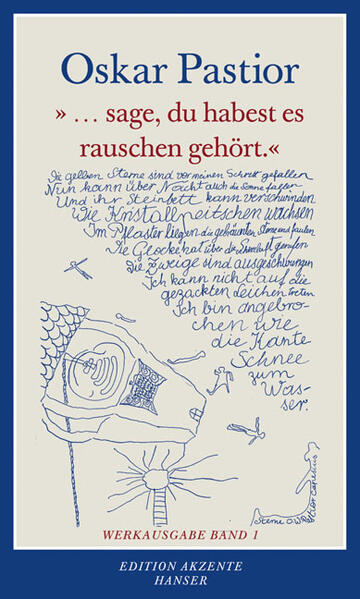 Oskar Pastior
» … sage, du habest es
rauschen gehört.«
Die gelben Sterne sind vor meinen Schritt gefallen
Nun kann über Nacht auch die Sonne fallen
Und ihr Steinbett kann verschwinden
Die Kristallpeitschen wachsen
Im Pflaster liegen die gebräunten Sterne und faulen
Die Glocke hat über die Luft gerufen
Die Zweige sind ausgeschwungen
Ich kann nicht auf die
gezackten Leichen treten
Ich bin angebro-
chen wie
die Kante
Schnee
zum
Was-
ser.
Sterne O.W.
WERKAUSGABE BAND 1
EDITION AKZENTE
HANSER